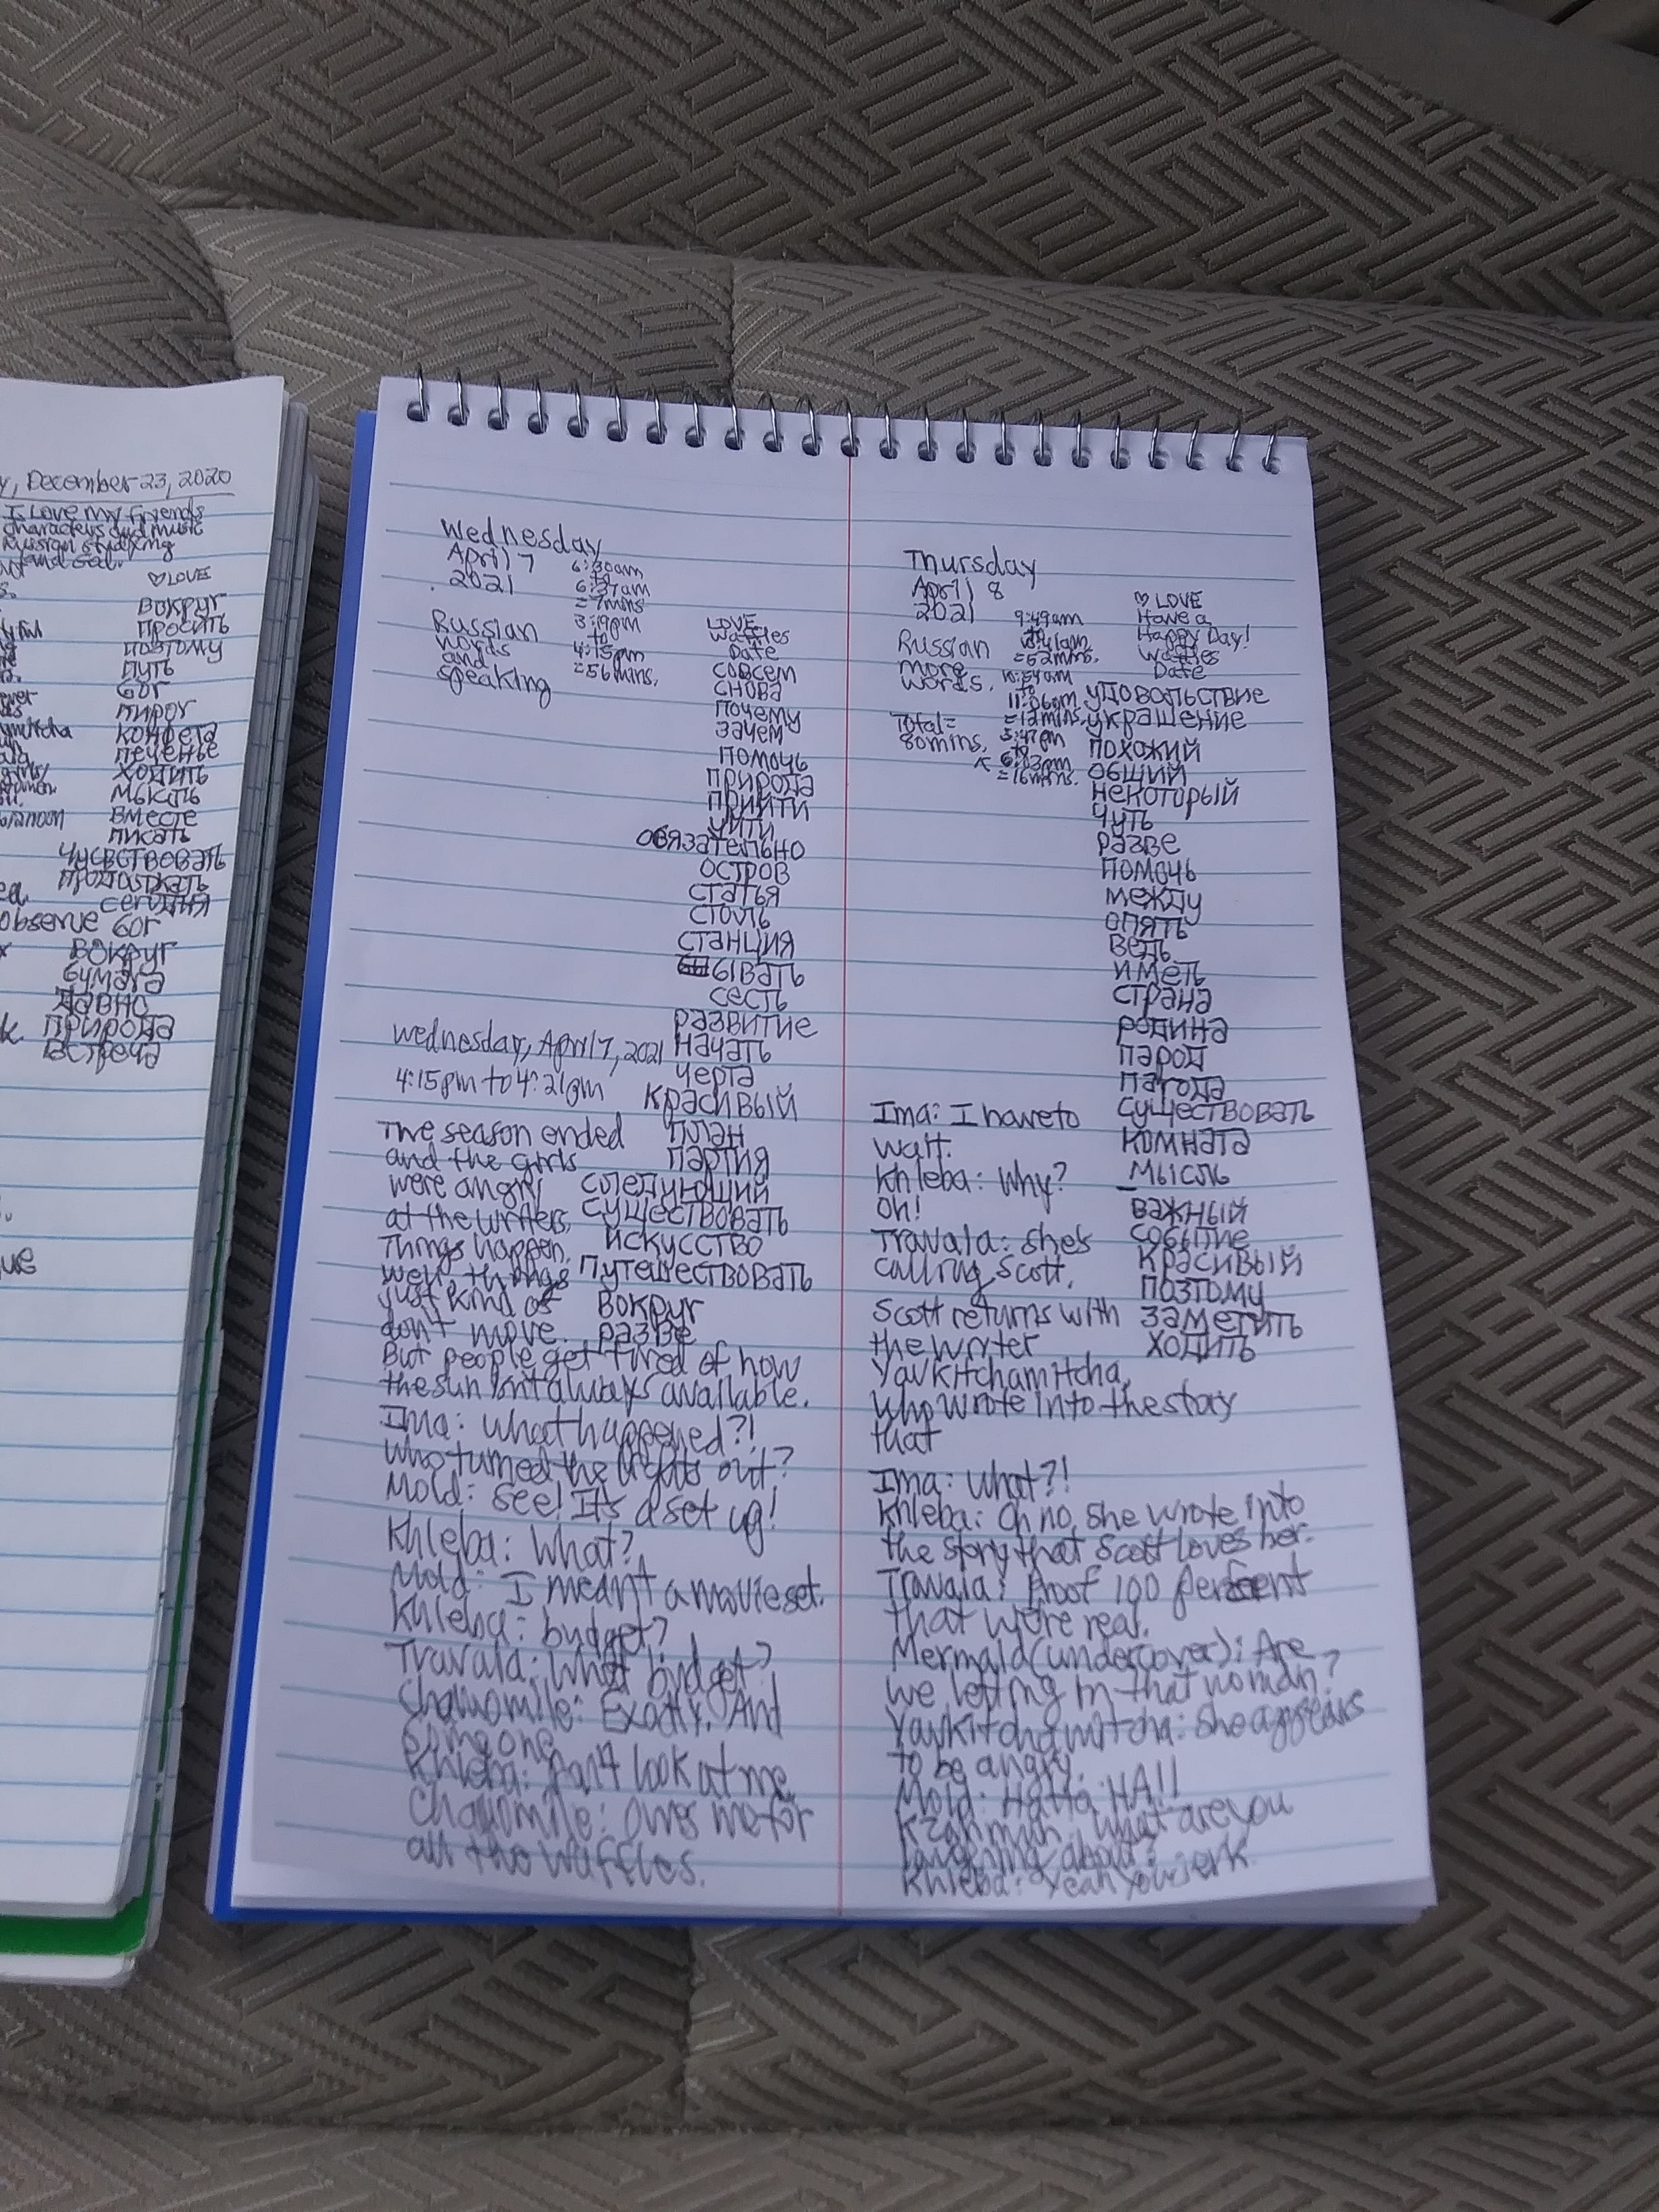 y, December 23, 2020
I Love my friends
characters and music
Russian studying
and Gal.
♡LOVE
вокруг
просить
поэтому
путь
бог
пирог
конфета
печенье
ходить
мысль
вместе
писать
чусвствовать
продолжать
сегодня
observe бог
вокруг
бумага
давно
природа
встреча
Wednesday
April 7
2021
6:30am
to
6:37am
=7mins
3:19pm
to
4:15pm
=56mins.
Russian
words
and
speaking
LOVE
Waffles
Date
совсем
снова
почему
зачем
помочь
природа
прийти
уйти
обязательно
остров
статья
столь
станция
бывать
сесть
развитие
начать
черта
красивый
план
партия
следующий
существовать
искусство
путешествовать
вокруг
разве
Wednesday, April 7, 2021
4:15pm to 4:21pm
The season ended
and the girls
were angry
at the writers.
Things happen.
Well, things
just kind of
don't move.
But people get tired of how
the sun isn't always available.
Ima: What happened?!
Who turned the lights out?
Mold: See! It's a set up!
Khleba: What?
Mold: I meant a movie set.
Khleba: budget?
Travala: What budget?
Chamomile: Exactly. And
someone
Khleba: Don't look at me.
Chamomile: Owes me for
all the waffles.
Thursday
April 8
2021
9:49am
to
10:41am
=52mins.
10:54am
to
11:06am
=12mins.
3:47pm
to
6:03pm
=16mins.
Russian
more
words.
Total=
80mins.
♡ LOVE
Have a
Happy Day!
Waffles
Date
удовольствие
украшение
похожий
общий
некоторый
чуть
разве
помочь
между
опять
ведь
иметь
страна
родина
парод
пагода
существовать
комната
мысль
важный
событие
красивый
поэтому
заметить
ходить
Ima: I have to
wait.
Khleba: Why?
Oh!
Travala: She's
calling Scott.
Scott returns with
the writer
Yavkitchamitcha,
who wrote into the story
that
Ima: What?!
Khleba: Oh no, she wrote into
the story that Scott loves her.
Travala: Proof 100 percent
that we're real.
Mermaid (undercover): Are
we letting in that woman?
Yavkitchamitcha: She appears
to be angry.
Mold: Ha Ha HA!!
what are you
laughing about?
Khleba: Yeah you jerk.